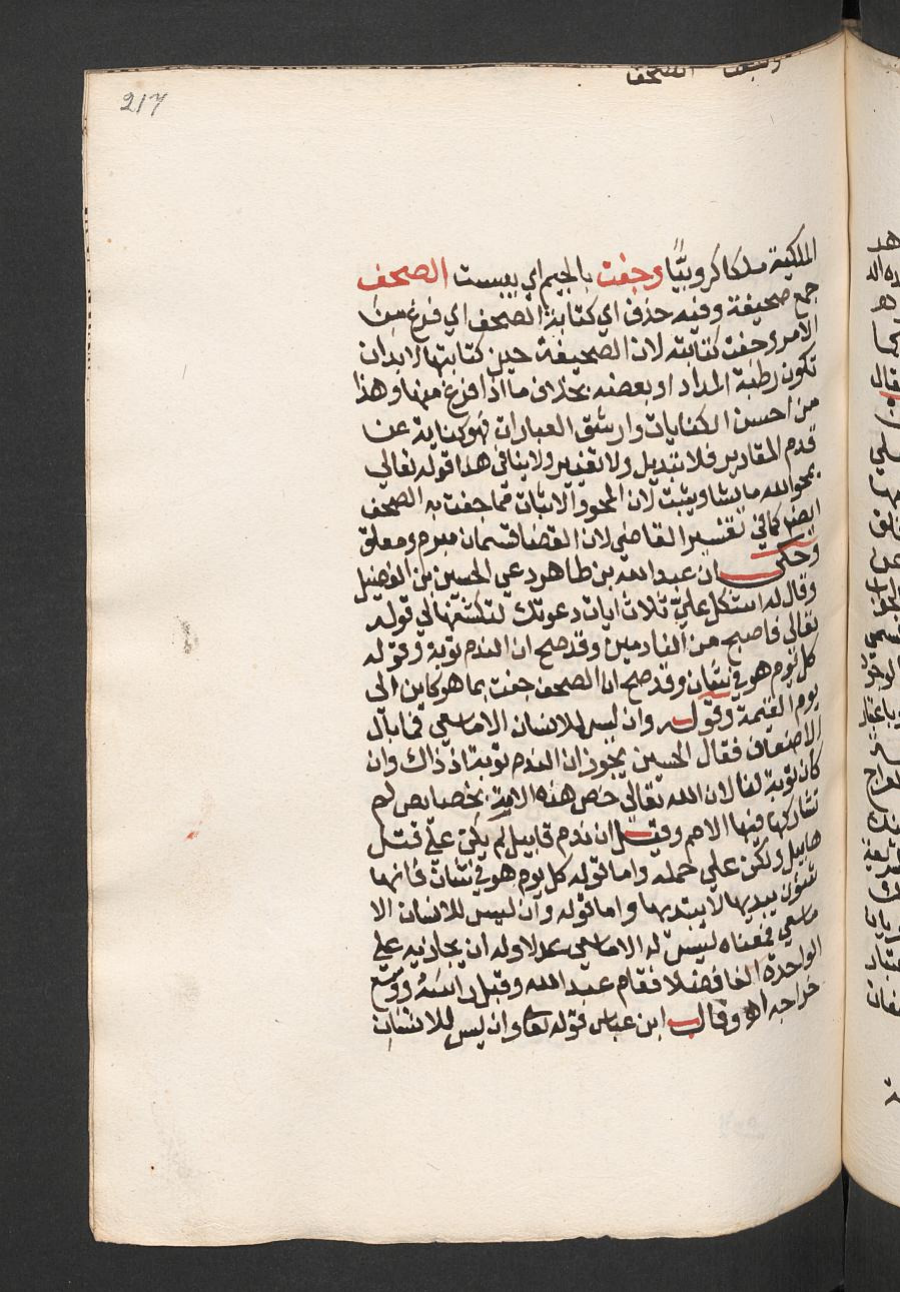 217
وجفت الصحف
الملكية ملكا كروبيًّا وجفت بالجيم اي يبست الصحف
جمع صحيفة وفيه حذف اي كتابة الصحف اي فرغ من
الامر وجفت كتابته لان الصحيفة حين كتابتها لابد ان
تكون رطبة المداد او بعضه بخلاف ما اذا فرغ منها وهذا
من احسن الكنايات وارشق العبارات فهو كناية عن
قدم المقادير فلا تبديل ولا تغيير ولا ينافي هذا قوله تعالي
يمحو الله ما يشا ويثبت لان المحو والاثبات مما جفت به الصحف
ايضا كما في تفسير القاضي لان القضا قسمان مبرم ومعلق
وحكي ان عبد الله بن طاهر دعي الحسين بن الفضيل
وقال له اشكل عليّ ثلاث ايات دعوتك لتكشفها لي قوله
تعالي فاصبح من النادمين وقد صح ان الندم توبة وقوله
كل يوم هو في شان وقد صح ان الصحف جفت بما هو كاين الى
يوم القيمة وقوله وان ليس للانسان الا ما سعي فما بال
الاضعاف فقال الحسين يجوز ان الندم توبة اذ ذاك وان
كان توبة لنا لان الله تعالي خص هذه الامة بخصايص لم
تشاركها فيها الامم وقيل ان ندم قابيل لم يكن علي قتل
هابيل ولكن علي حمله واما قوله كل يوم هو في شان فانها
شؤن يبديها لا يبتديها واما قوله وان ليس للانسان الا
ما سعي فمعناه ليس له الا ما سعي عدلا وله ان يجازيه علي
الواحدة الفا فضلا فقام عبد الله وقبل راسه ووسع
خراجه اه وقال ابن عباس قوله تعا وان ليس للانسان